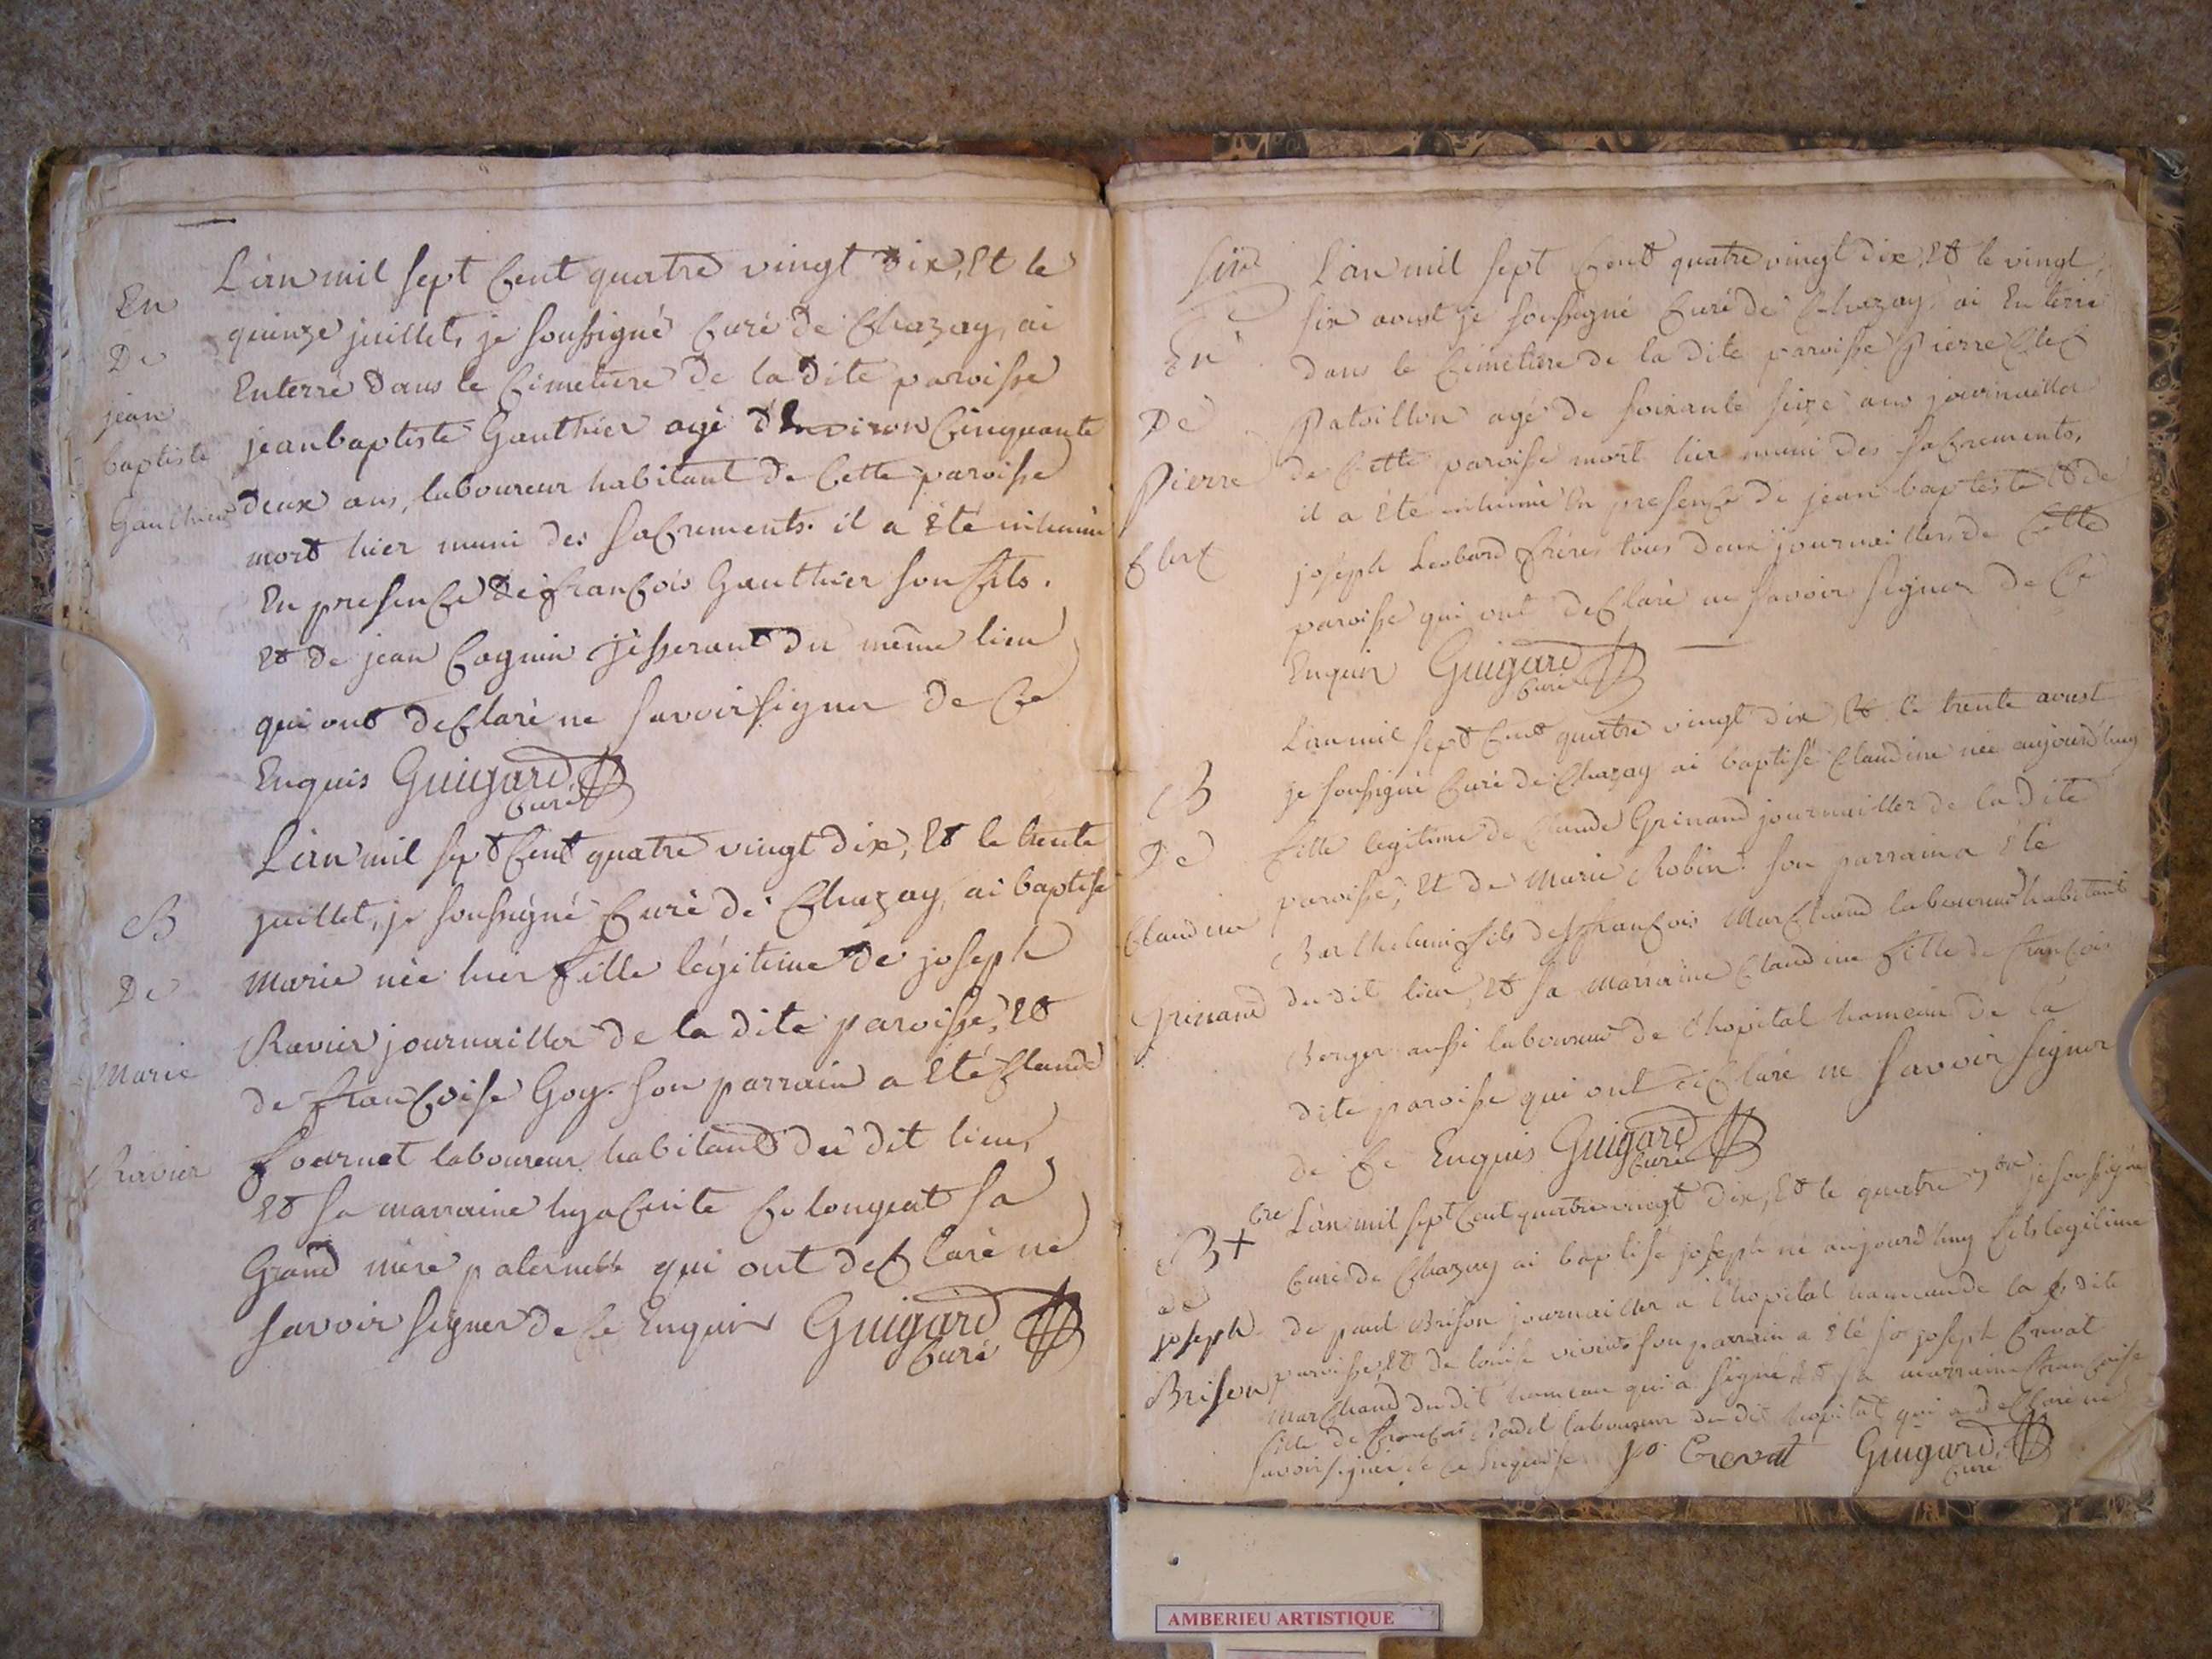 L'an mil sept Cent quatre vingt dix, Et le
En
quinze juillet, je soussigné Curé de Chazay, ai
De
Enterré dans le Cimetiere de la dite paroisse
jean
jean baptiste Gauthier agé d'Environ Cinquante
baptiste
Gauthier
deux ans, laboureur habitant de Cette paroisse
mort hier muni des saCrements. il a Eté inhumé
En presenCe de franCois Gauthier son fils.
Et de jean Cognin du même lieu
qui ont deClaré ne savoir signer de Ce
Enquis Guigard
Curé
L'an mil sept Cent quatre vingt dix, Et le trente
juillet, je soussigné Curé de Chazay, ai baptisé
B
Marie née hier fille légitime de joseph
De
Ravier journailler de la dite paroisse, Et
Marie
de franCoise Goy. son parrain a Eté Claude
Ravier
fournet laboureur habitant du dit lieu,
Et sa marraine hyaCinte Colongeat sa
Grand mere paternelle qui ont deClaré ne
savoir signer de Ce Enquis Guigard
Curé
L'an mil sept Cent quatre vingt dix, Et le vingt
six aoust je soussigné Curé de Chazay ai Enterré
En
dans le Cimetiere de la dite paroisse Pierre CleC
De
Patoillon agé de soixante seize ans journailler
Pierre
de Cette paroisse mort hier muni des saCrements,
il a Eté inhumé En presenCe de jean baptiste Et de
joseph Leobard freres tous deux journaillers de Cette
paroisse qui ont deClaré ne savoir signer de Ce
Enquis Guigard
Curé
L'an mil sept Cent quatre vingt dix Et le trente aoust
B
je soussigné Curé de Chazay ai baptisé Claudine née aujourd'huy
De
fille legitime de Claude Grinand journailler de la dite
paroisse, Et de Marie Robin. son parrain a Eté
Claudine
Barthelemi fils de franCois MarChand laboureur habitant
Grinand
du dit lieu, Et sa marraine Claudine fille de franCois
Berger aussi laboureur de l'hopital hameau de la
dite paroisse qui ont deClaré ne savoir signer
de Ce Enquis Guigard
Curé
L'an mil sept Cent quatre vingt dix, Et le quatre 7bre je soussigné
B +
Curé de Chazay ai baptisé joseph né aujourd'huy fils legitime
de
joseph
de paul Brison journailler a l'hopital hameau de la dite
Brison
paroisse, Et de louise son parrain a Eté sr joseph Crevat
marChand du dit hameau qui a signé, Et sa marraine franCoise
fille de franCois Radel laboureur du dit hopital qui a deClaré ne
savoir signer de Ce Enquise jo Crevat Guigard
Curé
AMBERIEU ARTISTIQUE